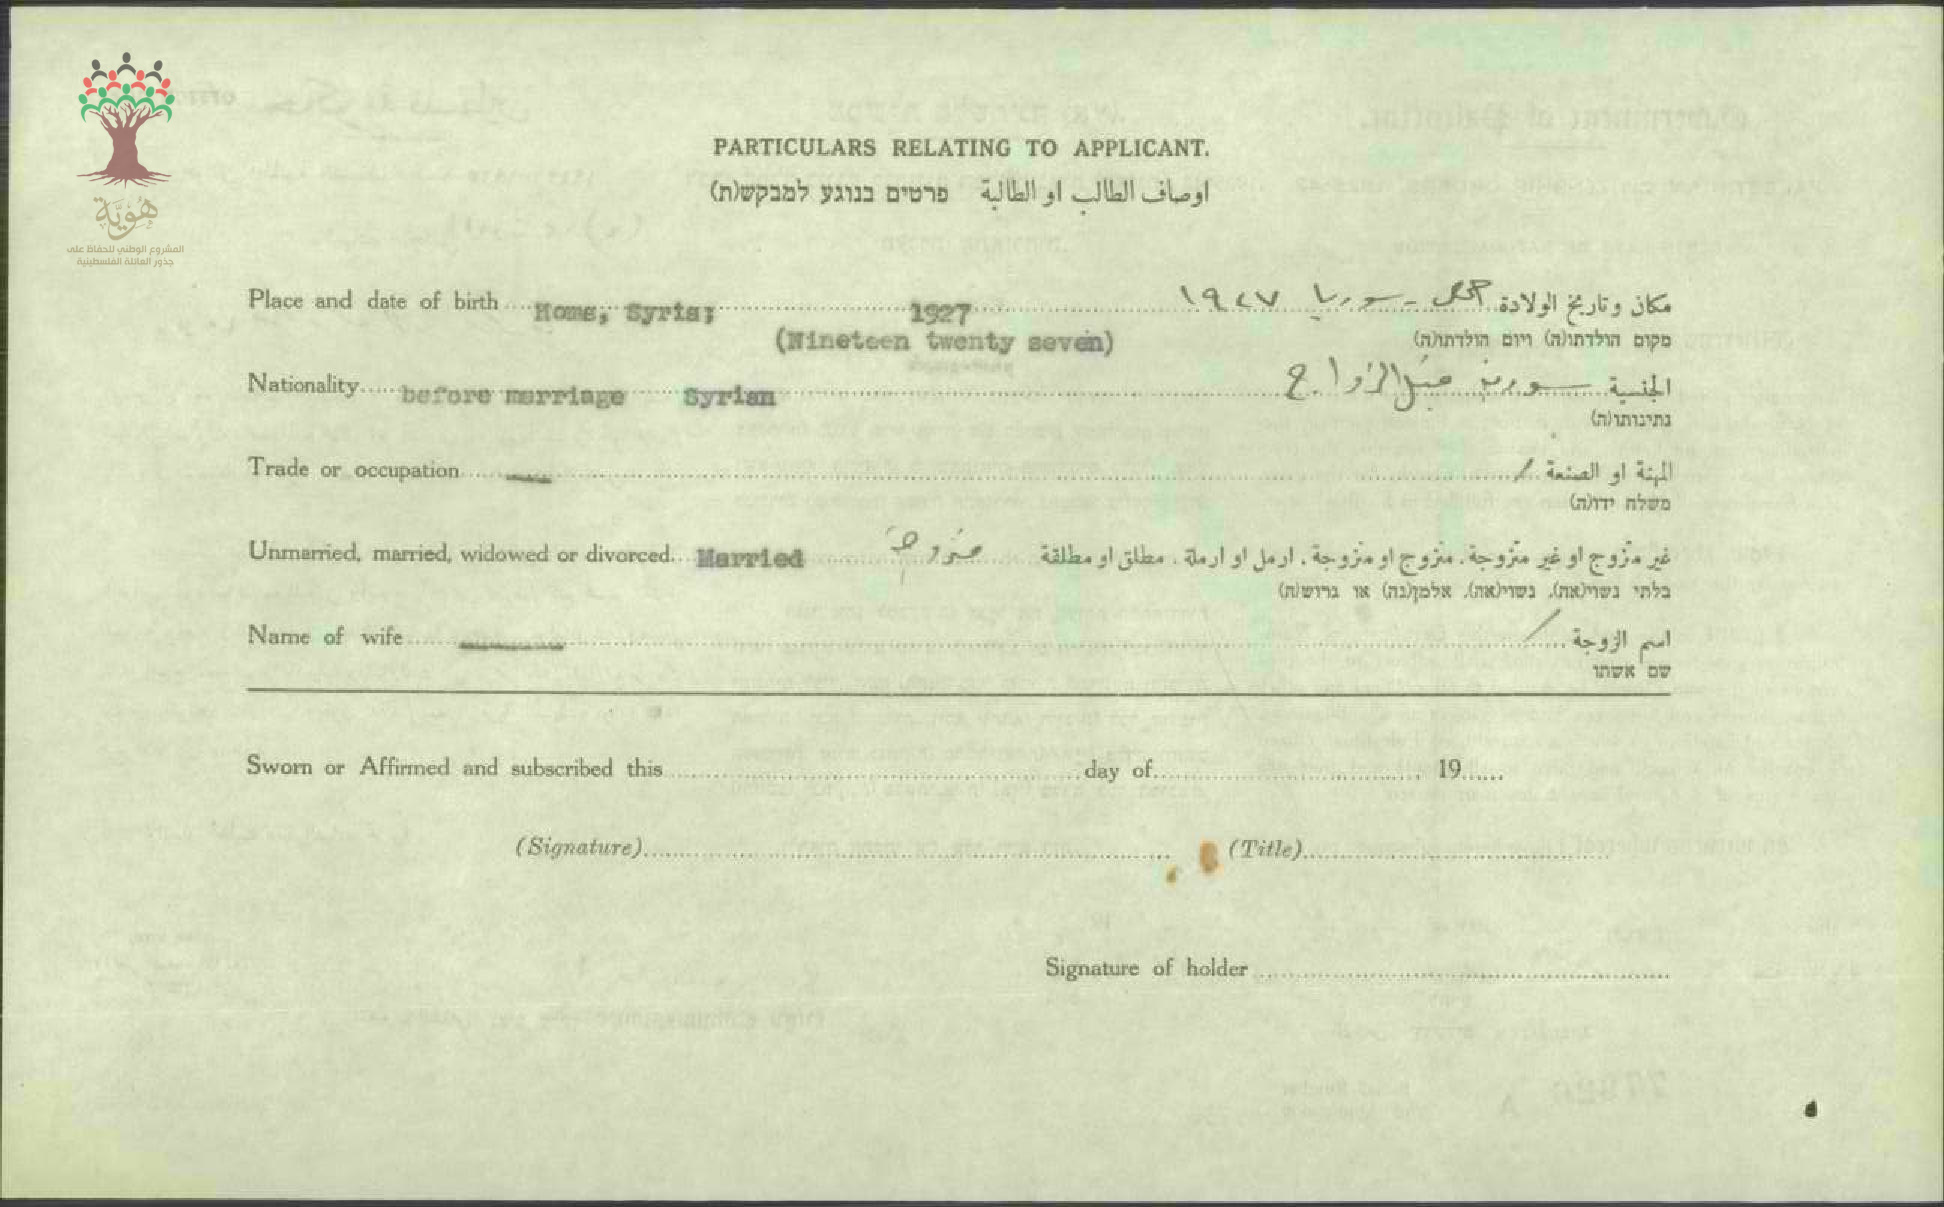 هوية
المشروع الوطني للحفاظ على
جذور العائلة الفلسطينية
PARTICULARS RELATING TO APPLICANT.
اوصاف الطالب او الطالبة פרטים בנוגע למבקש(ת)
Place and date of birth Homs, Syria; 1927 حمص - سوريا ١٩٢٧ مكان وتاريخ الولادة
(Nineteen twenty seven) מקום הולדתו(ה) ויום הולדתו(ה)
Nationality before marriage Syrian سورية قبل الزواج الجنسية
נתינותו(ה)
Trade or occupation — / المهنة او الصنعة
משלח ידו(ה)
Unmarried, married, widowed or divorced. Married متزوجة غير متزوج او غير متزوجة. متزوج او متزوجة. ارمل او ارملة. مطلق او مطلقة
בלתי נשוי(אה). נשוי(אה). אלמן(נה) או גרוש(ה)
Name of wife — / اسم الزوجة
שם אשתו
Sworn or Affirmed and subscribed this day of 19
(Signature) (Title)
Signature of holder